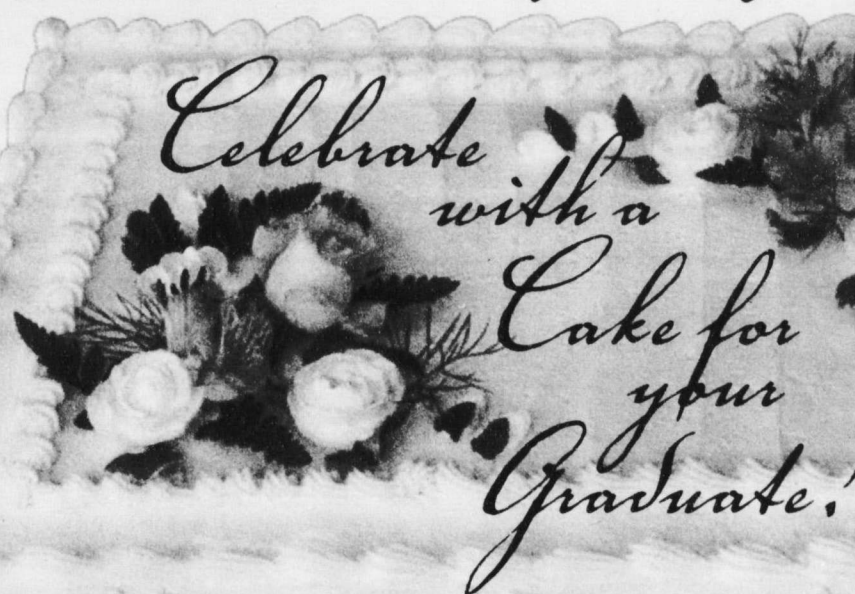 Celebrate
with a
Cake for
your
Graduate!